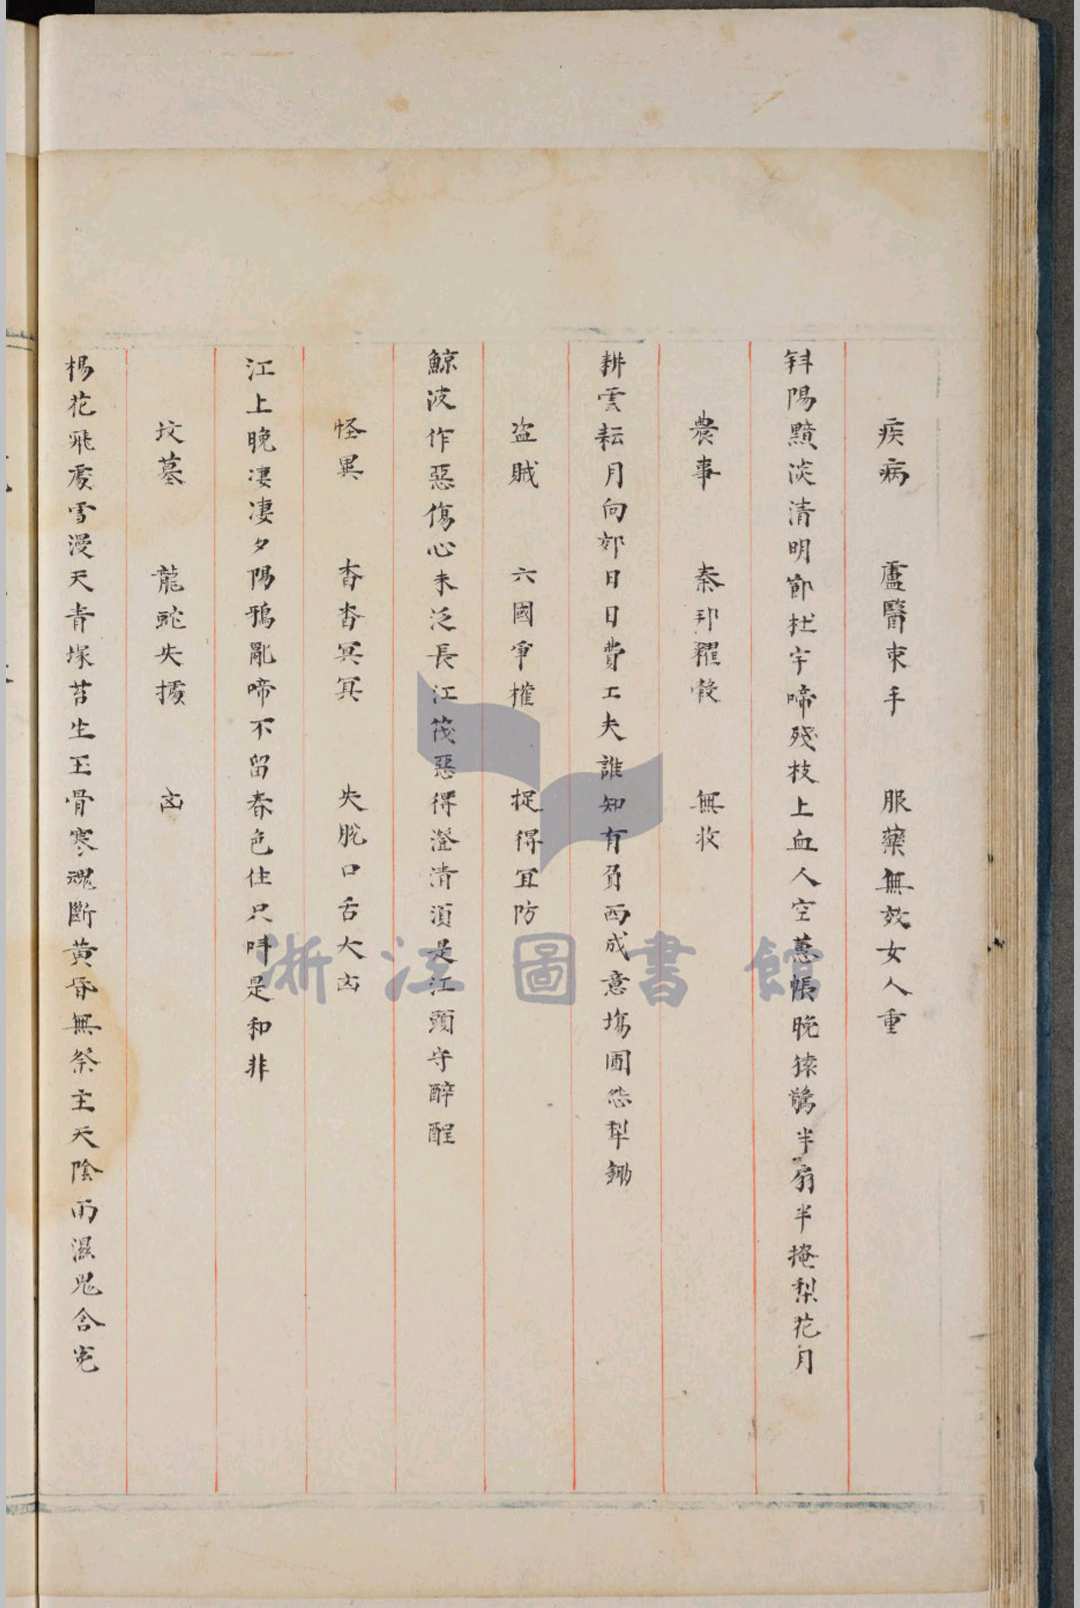 疾病 盧醫束手 服藥無效女人重
斜陽黯淡清明節杜宇啼殘枝上血人空蕙帳晚猿鶴半扇半掩梨花月
農事 秦邦糴穀 無收
耕雲耘月向郊日日費工夫誰知有負西成意塲圃恣犁鋤
盗賊 六國爭權 捉得宜防
鯨波作惡傷心未泛長江筏惡得澄清須是江頭守醉醒
怪異 杳杳冥冥 失脫口舌大凶
江上晚凄凄夕陽鴉亂啼不留春色住只吽是和非
坟墓 龍蛇失據 凶
楊花飛處雪漫天青塚苔生玉骨寒魂斷黃昏無祭主天陰雨濕鬼含寃
浙江圖書館